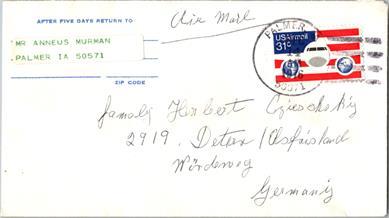 AFTER FIVE DAYS RETURN TO
Air Mail
MR ANNEUS MURMAN
PALMER IA 50571
ZIP CODE
PALMER
50571
US Airmail
31c
Family Herbert
2919. Detern/Ostfriesland
Germany